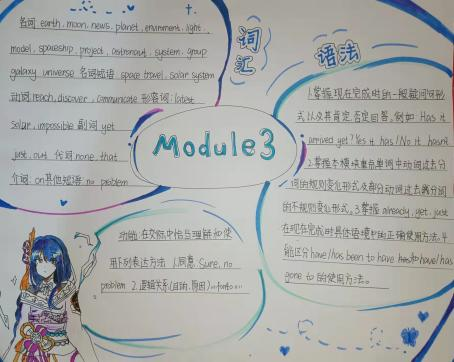 名词 earth, moon, news, planet, envirnment, light,
model, spaceship, project, astronaut, system, group
galaxy universe 名词短语 space travel, solar system
动词 reach, discover, communicate 形容词: latest
solar, impossible 副词 yet
just, out 代词 none, that
介词: on 其他短语 no problem
词汇
语法
1.掌握现在完成时的一般疑问句形
式以及其肯定、否定回答, 例如 Has it
arrived yet? Yes it has/No it hasn't
2.掌握本模块重点单词中动词过去分
词的规则变化形式及部分动词过去分词
的不规则变化形式。3.掌握 already, yet, just
在现在完成时具体语境中的正确使用方法。4.
能区分 have/has been to have has to have/has
gone to 的使用方法。
Module3
功能: 在交际中恰当理解和使
用下列表达方法 1.同意: Sure, no
problem 2.逻辑关系(目的、原因)